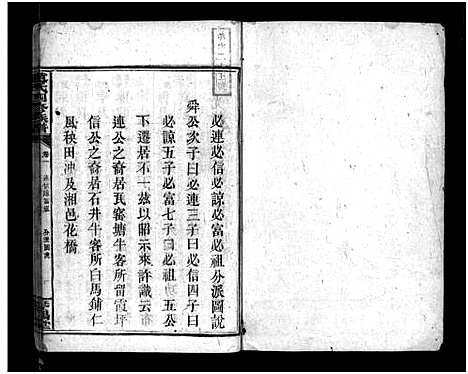 必連必信必諒必富必祖分派圖說
舜公次子曰必連三子曰必信四子曰
必諒五子必富七子曰必祖　五公
下遷居不一茲以昭示來許識云
連公之裔居瓦窰塘牛客所留霞坪
信公之裔居石井牛客所白馬鋪仁
風秧田沖及湘邑花橋
卷一